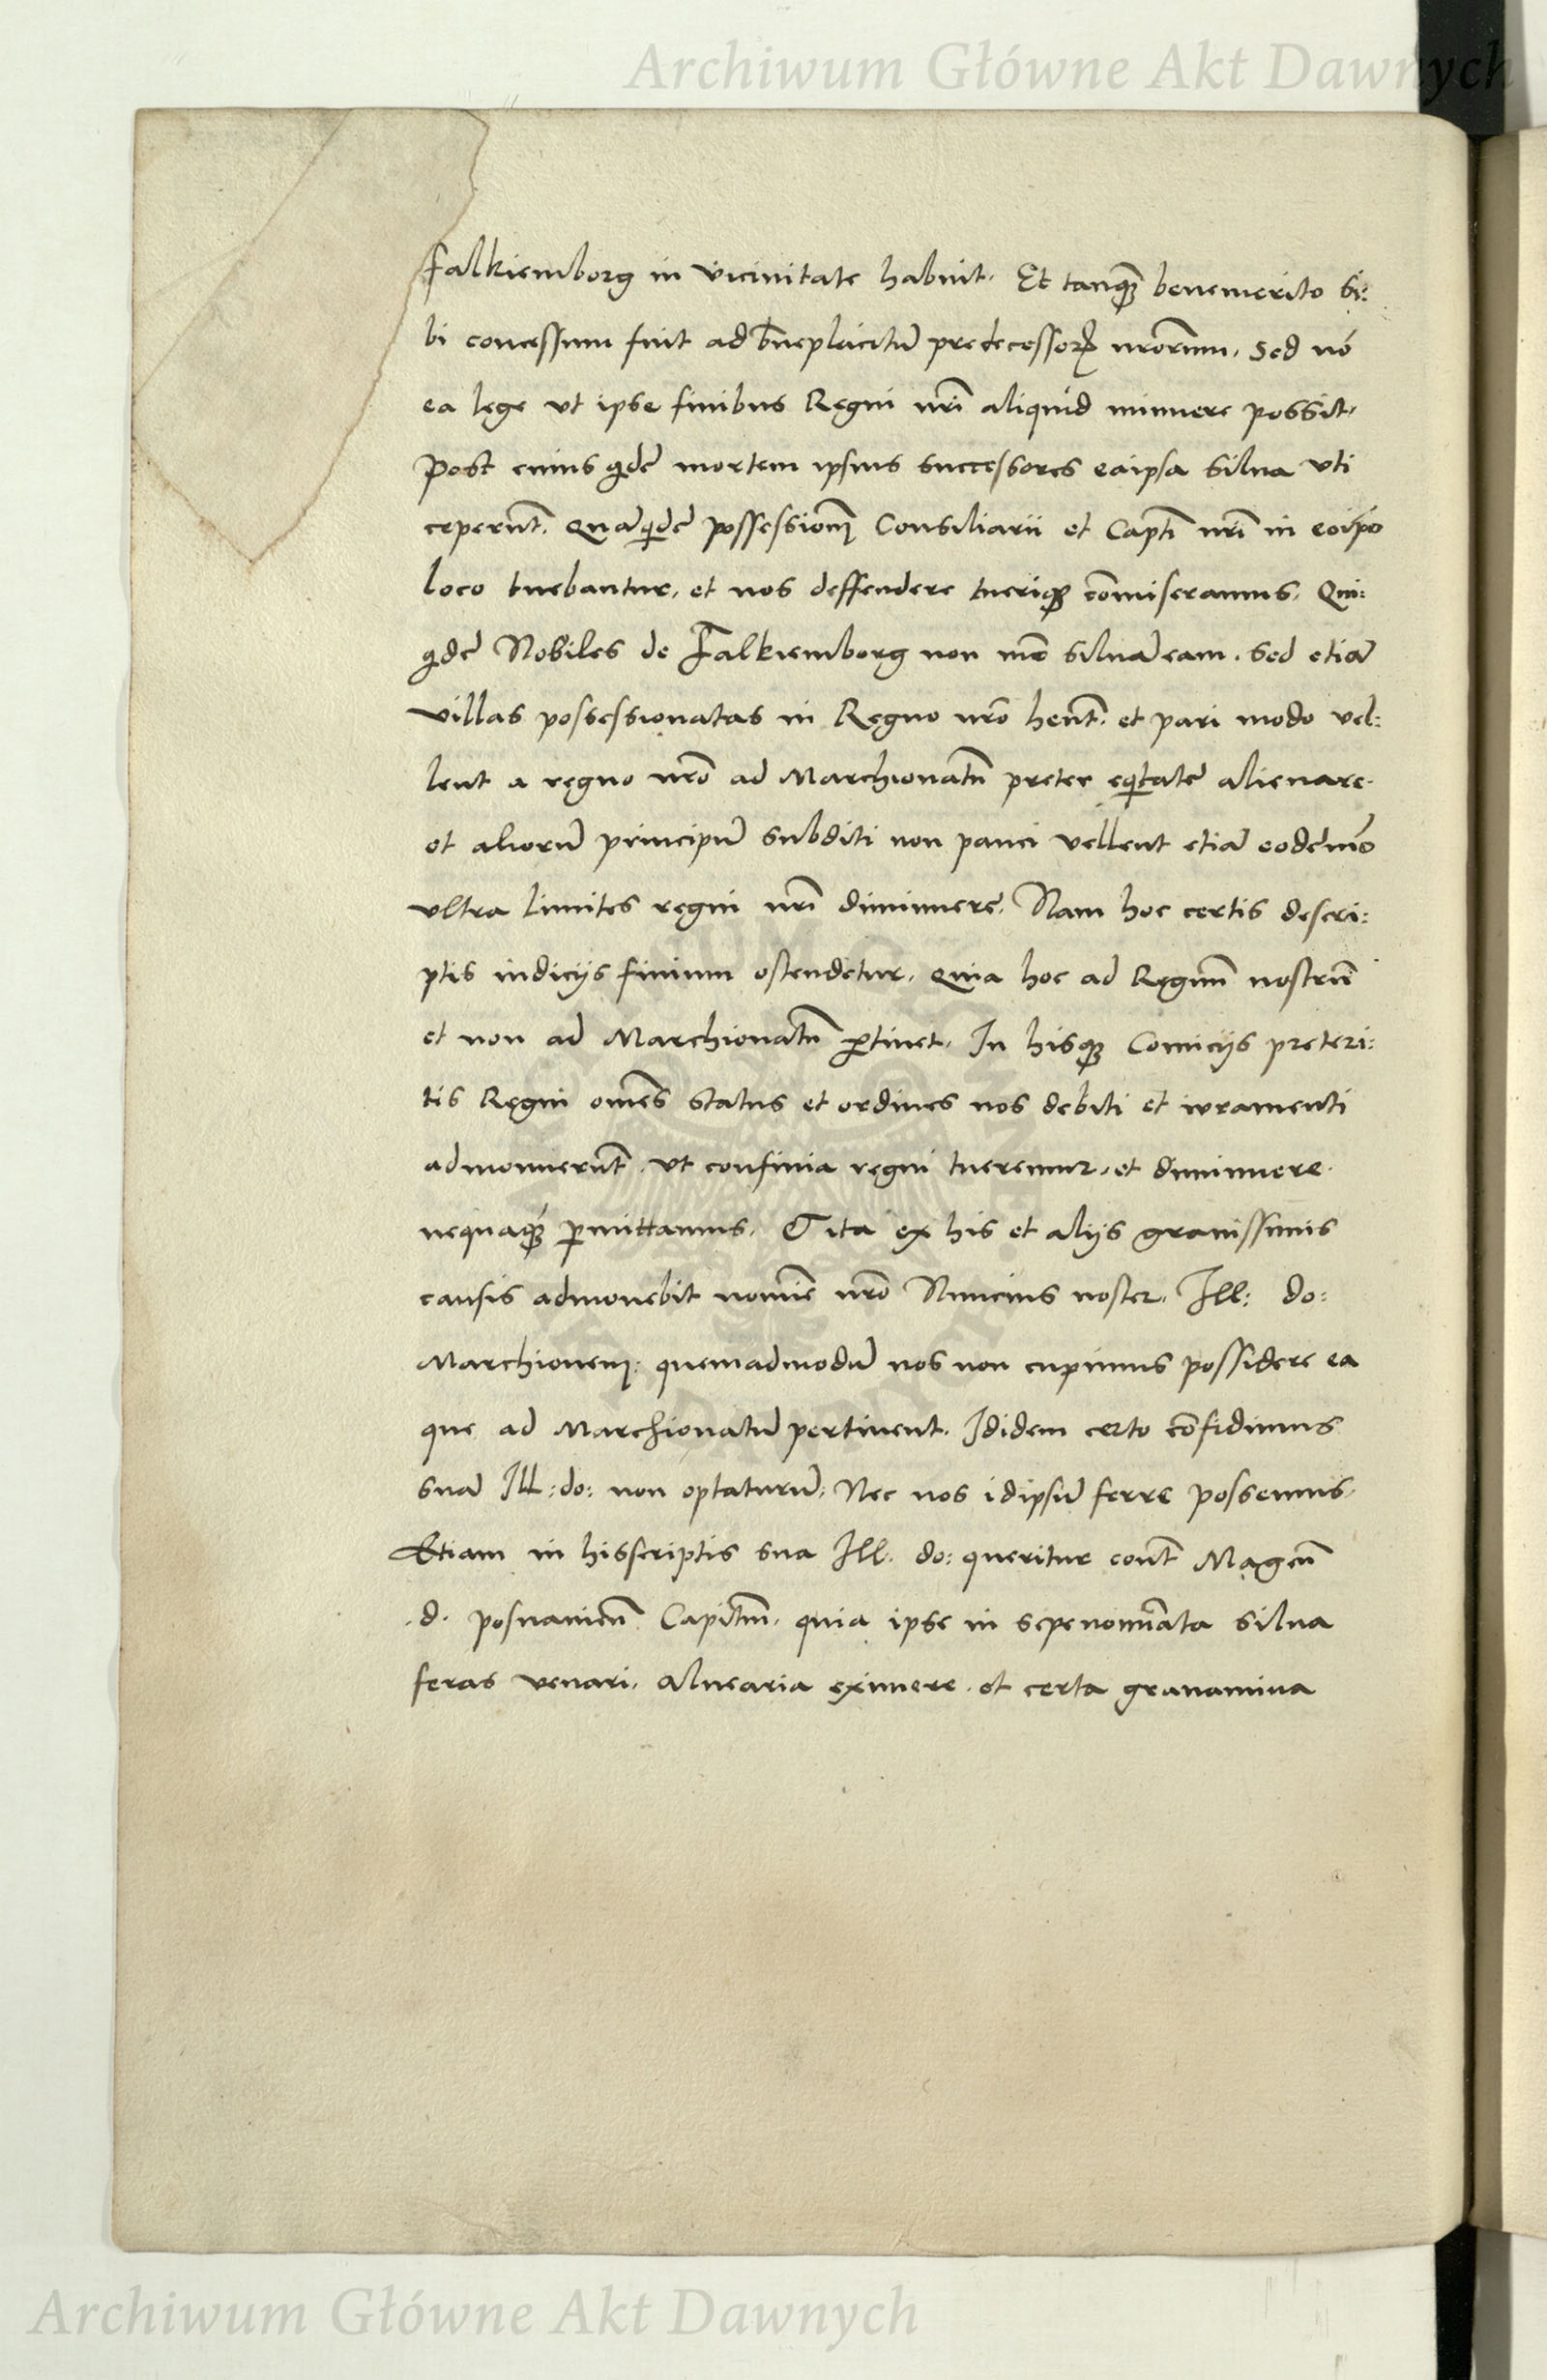 Archiwum Główne Akt Dawnych
Falkiemborg in vicinitate habuit. Et tanq̃ benemerito si:
bi concessum fuit ad b̃neplacitũ predecessorꝝ nrõrum. Sed nõ
ea lege ut ipse finibus Regni nrĩ aliquid minuere possit.
Post cuius qd̃e mortem ipsius successores eaipsa silva uti
ceperũt. Quã qd̃e possessionẽ Consiliarii et Capt̃i nrĩ in eoip̃o
loco tuebantur, et nos deffendere tueriq̃ cõmiseramus. Qui:
qd̃e Nobiles de Falkiemborg non mõ silvã eam. Sed etiã
villas possessionatas in Regno nrõ hẽnt. et pari modo vel:
lent a regno nrõ ad Marchionatũ preter eq̃tatẽ alienare.
et aliorũ principũ subditi non pauci vellent etiã eodẽ mõ
ultra limites regni nrĩ diminuere. Nam hoc certis descri:
ptis indiciis finium ostendetur. Quia hoc ad Regnũ nostrũ
et non ad Marchionatũ ꝑtinet. In hisq̃ Comiciis preteri:
tis Regni omẽs status et ordines nos debiti et iuramenti
admonuerũt. ut confinia regni tueremur. et diminuere
nequaq̃ ꝑmittamus. Et ita ex his et aliis gravissimis
causis admonebit nomĩe nrõ Nuncius noster. Ill: do:
Marchionem: quemadmodũ nos non cupimus possidere ea
que ad Marchionatũ pertinent. Ididem certo cõfidimus
suã Ill: do: non optaturũ. Nec nos idipsũ ferre possemus.
Etiam in hisscriptis sua Ill. do: queritur cont̃ Magcũ
d. posnanieñ Capitm̃. quia ipse in sepenomĩata silva
feras venari. alvearia eximere. et certa gravamina
Archiwum Główne Akt Dawnych